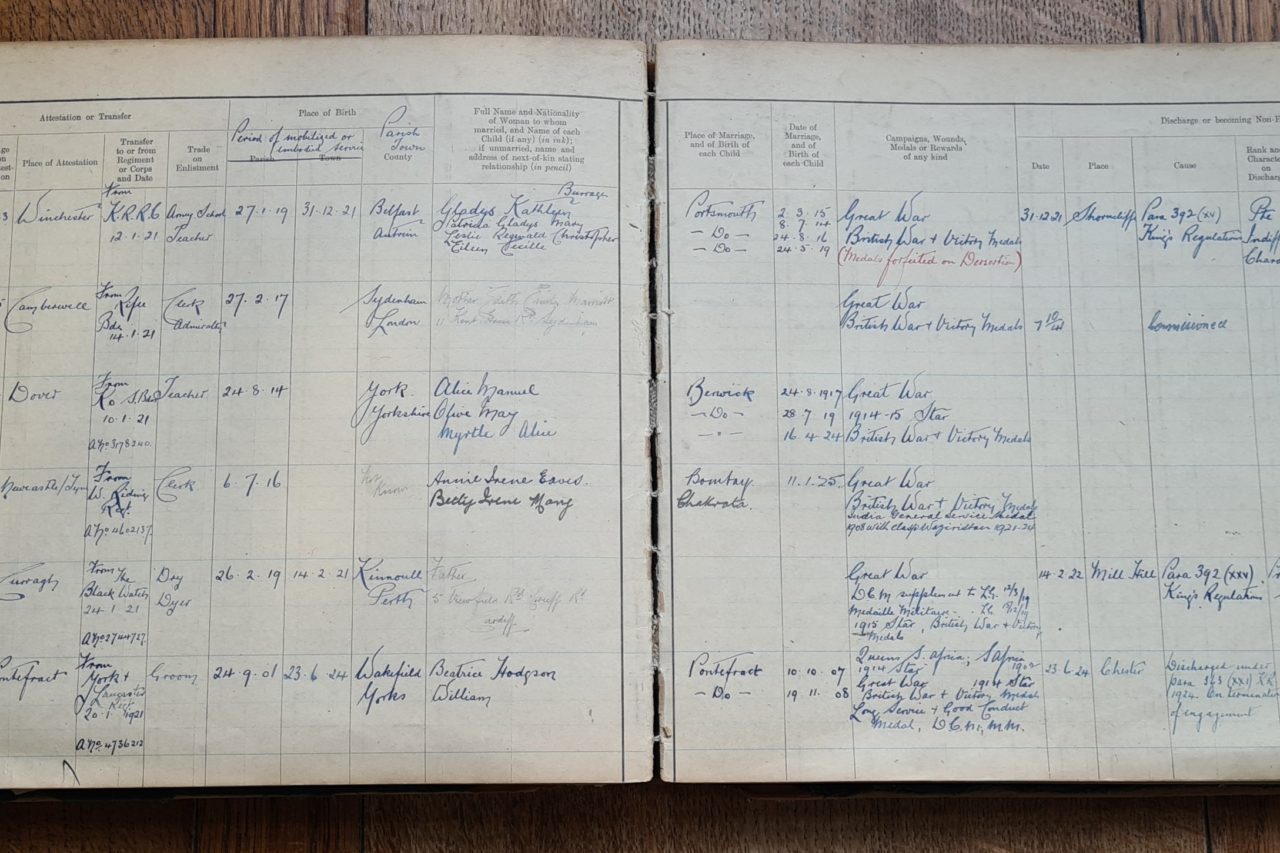 Attestation or Transfer
Place of Attestation
Transfer
to or from
Regiment
or Corps
and Date
Trade
on
Enlistment
Place of Birth
Period of mobilized or
embodied service
Parish
Town
Parish
Town
County
Full Name and Nationality
of Woman to whom
married, and Name of each
Child (if any) (in ink);
if unmarried, name and
address of next-of-kin stating
relationship (in pencil)
Place of Marriage,
and of Birth of
each Child
Date of
Marriage,
and of
Birth of
each Child
Campaigns, Wounds,
Medals or Rewards
of any kind
Discharge or becoming Non-
Date
Place
Cause
Rank and
on
Winchester
From
K.R.R.C
12.1.21
Army School
Teacher
27.1.19
31.12.21
Belfast
Antrim
Burrage
Gladys Kathleen
Patricia Gladys Mary
Leslie Reginald Christopher
Eileen Cecille
Portsmouth
- Do -
- Do -
2.3.15
24.8.16
24.5.19
Great War
British War & Victory Medals
(Medals forfeited on Desertion)
31.12.21
Shorncliff
Para 392 (xv)
King's Regulations
Pte
Camberwell
From
Rifle
Bde
14.1.21
Clerk
Admiralty
27.2.17
Sydenham
London
Mother
Sydenham
Great War
British War & Victory Medals
Commissioned
Dover
From
10.1.21
Teacher
24.8.14
York
Yorkshire
Alice Manuel
Olive May
Myrtle Alice
Berwick
- Do -
24.8.1917
28.7.19
16.4.24
Great War
1914-15 Star
British War & Victory Medals
Newcastle/Tyne
From
W. Riding
Regt
Clerk
6.7.16
Not
Known
Annie Irene Eaves.
Betty Irene Mary
Bombay
Chakrata.
11.1.25
Great War
British War & Victory Medals
India General Service Medal
1908 with clasp Waziristan 1921-24
Curragh
From The
Black Watch
24.1.21
Dry
Dyer
26.2.19
14.2.21
Kinnoull
Perth
Father
Great War
D.C.M. supplement to L.G.
Medaille Militaire
1915 Star, British War & Victory
Medals
14.2.22
Mill Hill
Para 392 (xxv)
King's Regulation
Pontefract
From
York &
Lancaster
Regt
20.1.1921
Groom
24.9.01
23.6.24
Wakefield
Yorks
Beatrice Hodgson
William
Pontefract
- Do -
10.10.07
19.11.08
Queens S. Africa, S Africa 1902
Great War 1914 Star
British War & Victory Medal
Long Service & Good Conduct
Medal, D.C.M, M.M.
23.6.24
Chester
Discharged under
para 363 (xxi) K.R.
1924. On termination
of engagement